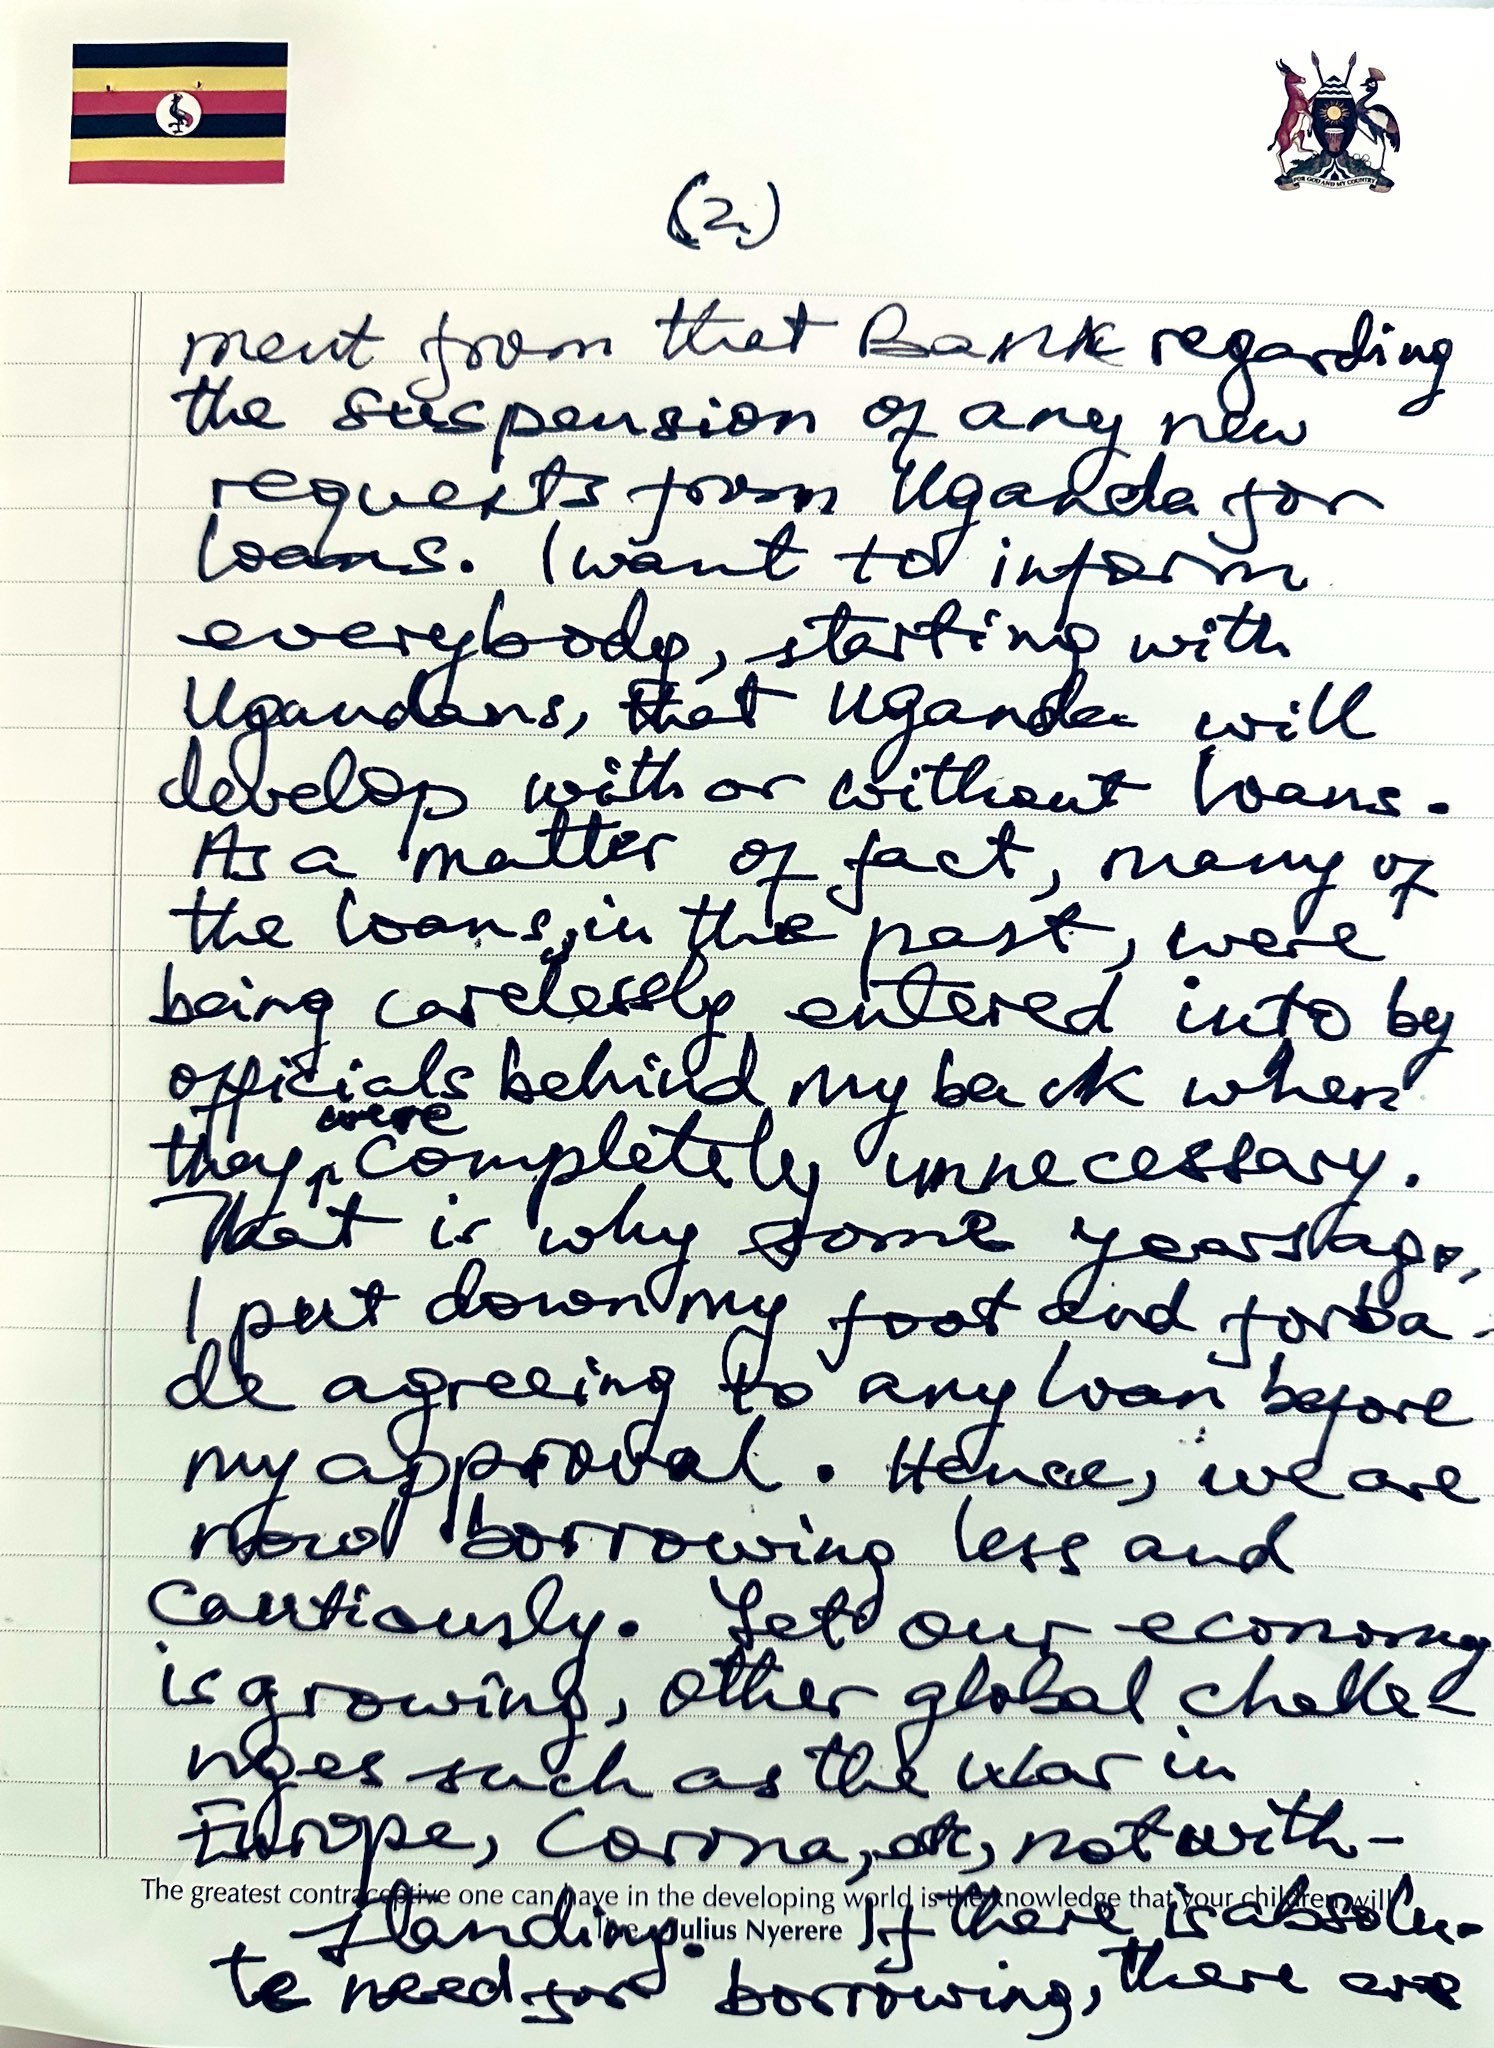 FOR GOD AND MY COUNTRY
(2.)
ment from that Bank regarding
the suspension of any new
requests from Uganda for
loans. I want to inform
everybody, starting with
Ugandans, that Uganda will
develop with or without loans.
As a matter of fact, many of
the loans, in the past, were
being carelessly entered into by
officials behind my back when
they were completely unnecessary.
That is why some years ago,
I put down my foot and forba-
de agreeing to any loan before
my approval. Hence, we are
now borrowing less and
cautiously. Yet our economy
is growing, other global challe-
nges such as the war in
Europe, Corona, etc, notwith-
The greatest contraceptive one can have in the developing world is the knowledge that your children will
live. Julius Nyerere
standing. If there is absolu-
te need for borrowing, there are